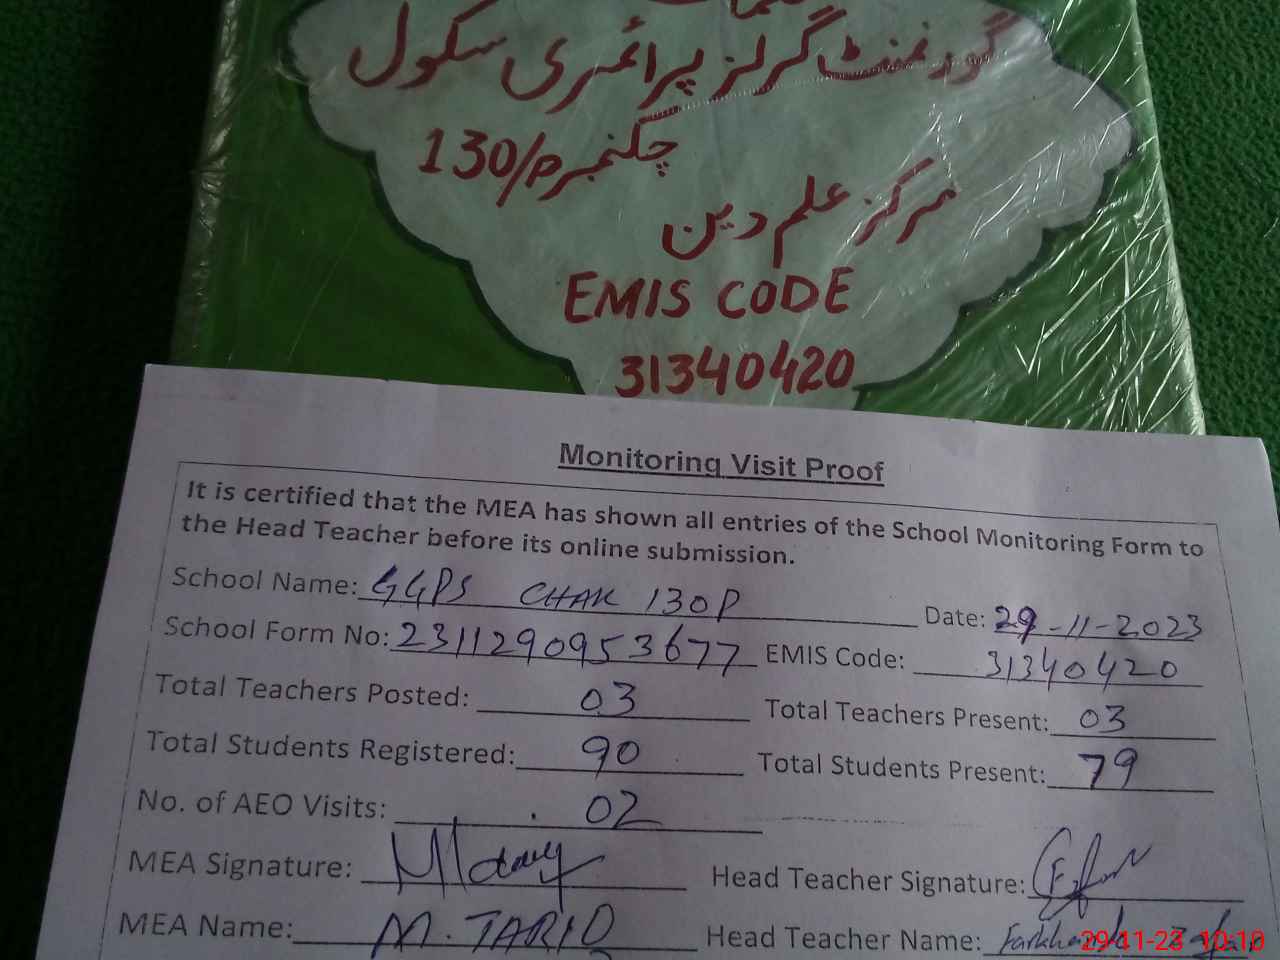 گورنمنٹ گرلز پرائمری سکول
چکنمبر 130/P
مرکز علم دین
EMIS CODE
31340420
Monitoring Visit Proof
It is certified that the MEA has shown all entries of the School Monitoring Form to
the Head Teacher before its online submission.
School Name: GGPS CHAK 130P Date: 29-11-2023
School Form No: 2311290953677 EMIS Code: 31340420
Total Teachers Posted: 03 Total Teachers Present: 03
Total Students Registered: 90 Total Students Present: 79
No. of AEO Visits: 02
MEA Signature: Head Teacher Signature:
MEA Name: M. TARIQ Head Teacher Name: Farkhanda
29-11-23 10:10